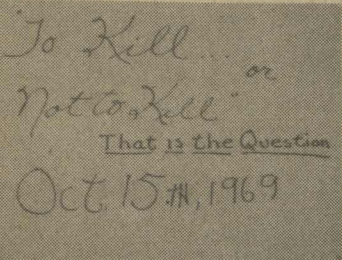 "To Kill...
or
Not to Kill"
That is the Question
Oct. 15TH, 1969